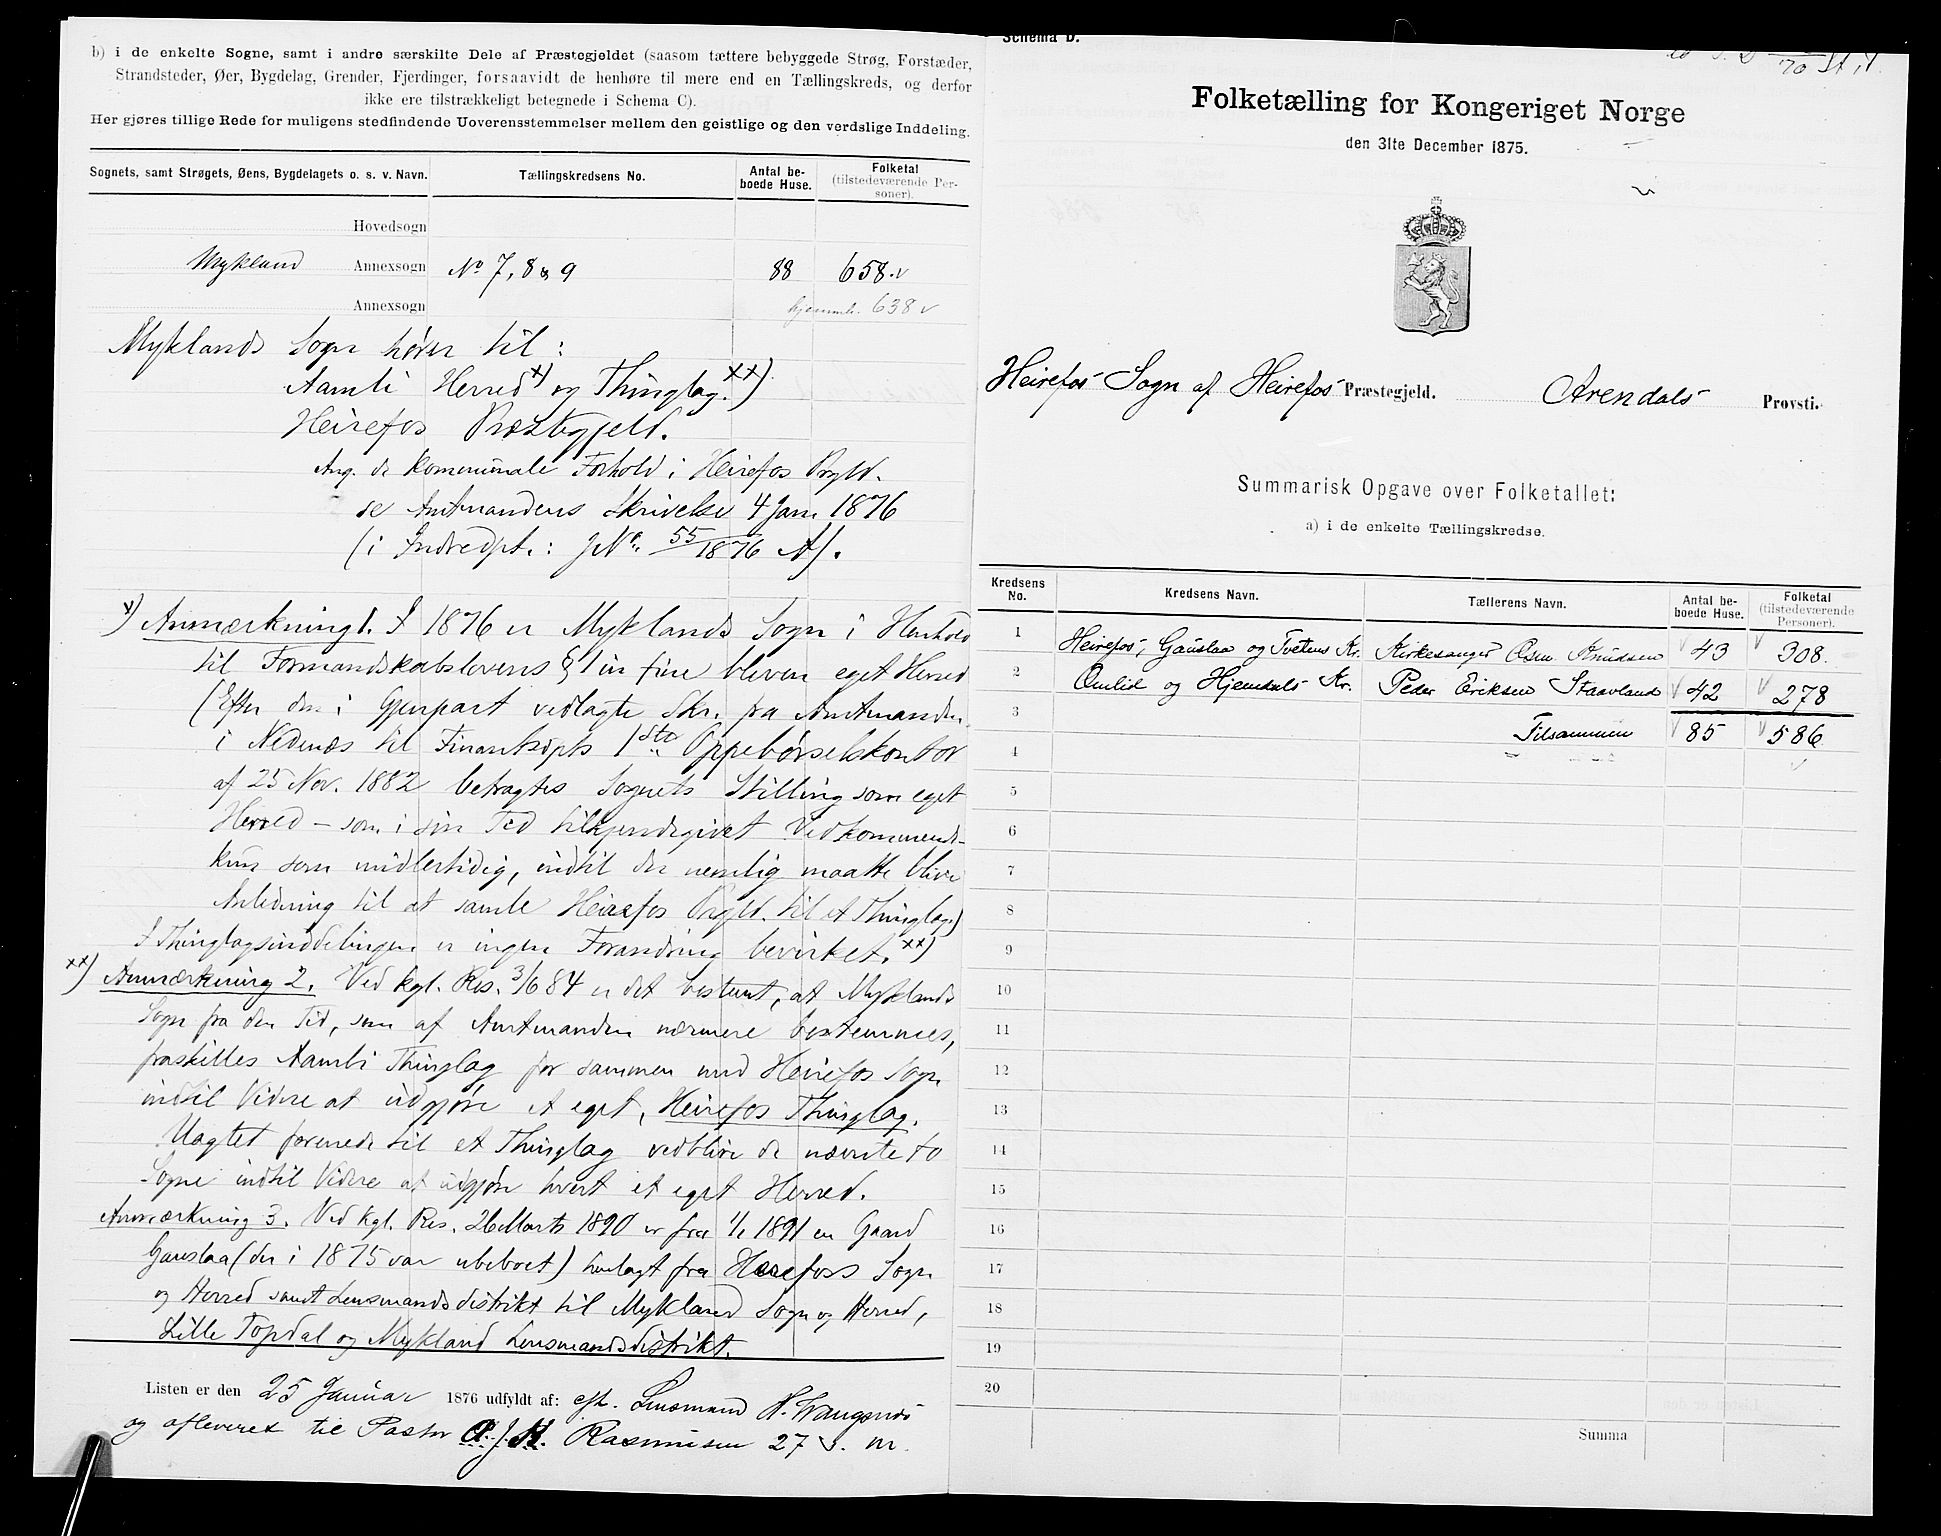 b) i de enkelte Sogne, samt i andre særskilte Dele af Præstegjeldet (saasom tættere bebyggede Strøg, Forstæder,
Strandsteder, Øer, Bygdelag, Grender, Fjerdinger, forsaavidt de henhøre til mere end en Tællingskreds, og derfor
ikke ere tilstrækkeligt betegnede i Schema C).
Her gjøres tillige Rede for muligens stedfindende Uoverensstemmelser mellem den geistlige og den verdslige Inddeling.
Sognets, samt Strøgets, Øens, Bygdelagets o. s. v. Navn. Tællingskredsens No. Antal beboede Huse. Folketal (tilstedeværende Personer).
Hovedsogn
Mykland Annexsogn No 7, 8 & 9 88 658.
Annexsogn hjemmh. 638
Myklands Sogn hører til:
Aamli Herred x) og Thinglag. xx)
Heirefos Præstegjeld.
Ang. de kommunale Forhold i Heirefos Prgld.
se Amtmandens Skrivelse 4 Jan. 1876
(i Indredpt.: JNo. 55/1876 A).
x) Anmærkning 1. I 1876 er Myklands Sogn i Henhold
til Formandskabslovens § 1 in fine bleven eget Herred
(Efter den i Gjenpart vedlagte Skr. fra Amtmanden
i Nedenæs til Finantsdpts 1ste Oppebørselskontor
af 25 Nov. 1882 betragtes Sognets Stilling som eget
Herred – som i sin Tid tilkjendegivet Vedkommende –
kun som midlertidig, indtil der nemlig maatte blive
Anledning til at samle Heirefos Prgld. til et Thinglag)
I Thinglagsinddelingen er ingen Forandring bevirket. xx)
xx) Anmærkning 2. Ved kgl. Res. 3/6 84 er det bestemt, at Myklands
Sogn fra den Tid, som af Amtmanden nærmere bestemmes,
fraskilles Aamli Thinglag for sammen med Heirefos Sogn
indtil Videre at udgjøre et eget, Heirefos Thinglag.
Uagtet forenede til et Thinglag vedblive de nævnte to
Sogne indtil Videre at udgjøre hvert et eget Herred.
Anmærkning 3. Ved kgl. Res. 26 Marts 1890 er fra 1/1 1891 en Gaard
Gauslaa (der i 1875 var ubeboet) henlagt fra Herefoss Sogn
og Herred samt Lensmandsdistrikt til Mykland Sogn og Herred,
Lille Topdal og Mykland Lensmandsdistrikt.
Listen er den 25 Januar 1876 udfyldt af: Lensmand
og afleveret til Pastor A. J. H. Rasmussen 27 s. m.
Schema D.
Folketælling for Kongeriget Norge
den 31te December 1875.
Heirefos Sogn af Heirefos Præstegjeld. Arendals Provsti.
Summarisk Opgave over Folketallet:
a) i de enkelte Tællingskredse.
Kredsens No. Kredsens Navn. Tællerens Navn. Antal beboede Huse. Folketal (tilstedeværende Personer).
1 Heirefos, Gauslaa og Tvetens Kr. Kirkesanger Osm. Knudsen 43 308.
2 Omlid og Hjemdals Kr. Peder Eriksen Staavland 42 278
3 Tilsammen 85 586
4
5
6
7
8
9
10
11
12
13
14
15
16
17
18
19
20
Summa